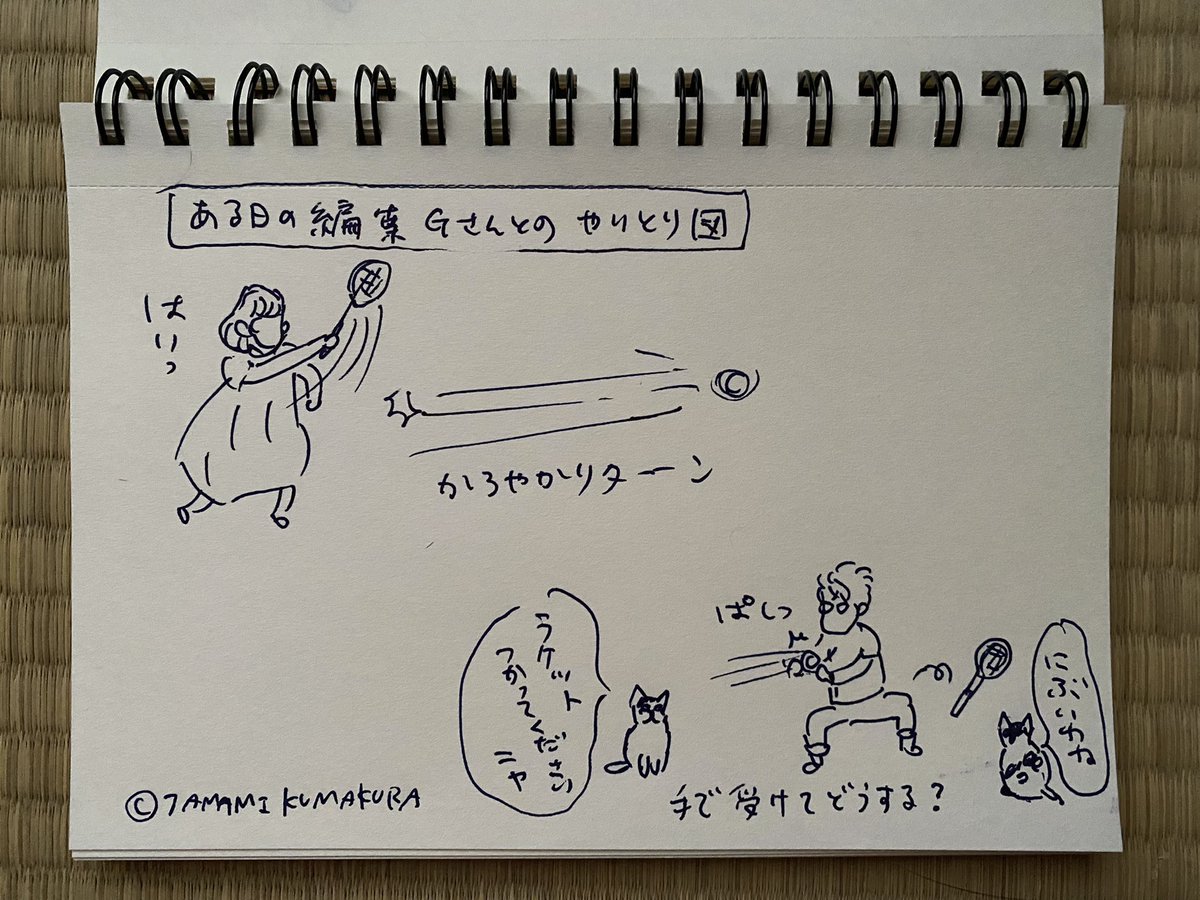 ある日の編集Gさんとのやりとり図
はいっ
かろやかリターン
ぱしっ
ラケット
つかってください
ニャ
にぶいわね
手で受けてどうする?
©TAMAMI KUMAKURA